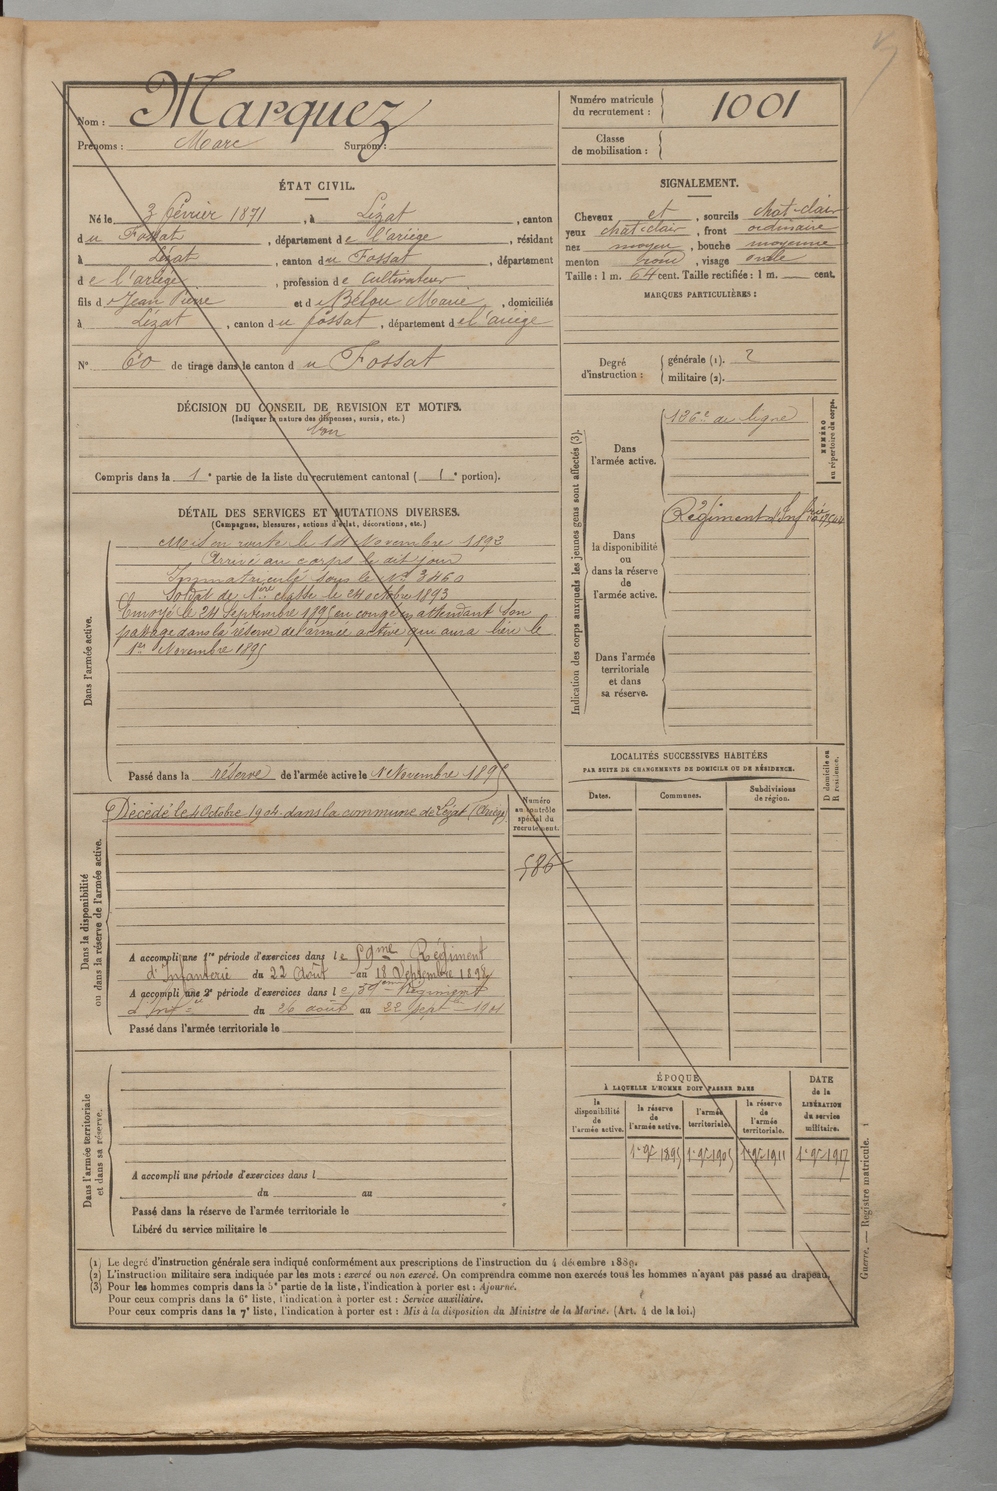 Nom : Marquez
Prénoms : Marc Surnom :
Numéro matricule
du recrutement : 1001
Classe
de mobilisation :
ÉTAT CIVIL.
Né le 3 février 1871, à Lézat, canton
du Fossat, département de l'ariège, résidant
à Lézat, canton du Fossat, département
de l'ariège, profession de cultivateur
fils de Jean Pierre et de Bélou Marie, domiciliés
à Lézat, canton du fossat, département de l'ariège
N° 60 de tirage dans le canton du Fossat
SIGNALEMENT.
Cheveux et, sourcils chat-clair
yeux chat-clair, front ordinaire
nez moyen, bouche moyenne
menton rond, visage ovale
Taille : 1 m. 64 cent. Taille rectifiée : 1 m. cent.
MARQUES PARTICULIÈRES :
Degré
d'instruction :
générale (1). 2
militaire (2).
DÉCISION DU CONSEIL DE REVISION ET MOTIFS.
(Indiquer la nature des dispenses, sursis, etc.)
bon
Compris dans la 1e partie de la liste du recrutement cantonal ( 1e portion).
DÉTAIL DES SERVICES ET MUTATIONS DIVERSES.
(Campagnes, blessures, actions d'éclat, décorations, etc.)
Dans l'armée active.
Mis en route le 14 Novembre 1892
Arrivé au corps le dit jour
Immatriculé sous le N° 3460
Soldat de 1ère classe le 24 octobre 1893
Envoyé le 24 Septembre 1895 en congé en attendant son
passage dans la réserve de l'armée active qui aura lieu le
1er Novembre 1895
Passé dans la réserve de l'armée active le 1er Novembre 1895
Indication des corps auxquels les jeunes gens sont affectés (3).
NUMÉRO
au répertoire du corps.
Dans
l'armée active.
136e de ligne
Dans
la disponibilité
ou
dans la réserve
de
l'armée active.
Régiment d'Infrie
Dans l'armée
territoriale
et dans
sa réserve.
Dans la disponibilité
ou dans la réserve de l'armée active.
Décédé le 4 Octobre 1904 dans la commune de Lézat (Ariège)
Numéro
au contrôle
spécial du
recrutement.
586
A accompli une 1re période d'exercices dans le 59me Régiment
d'Infanterie du 22 Août au 18 Septembre 1898
A accompli une 2e période d'exercices dans le 59eme Régiment
d'Infie du 26 août au 22 Sept 1901
Passé dans l'armée territoriale le
LOCALITÉS SUCCESSIVES HABITÉES
PAR SUITE DE CHANGEMENTS DE DOMICILE OU DE RÉSIDENCE.
D domicile ou
R résidence.
Dates. Communes. Subdivisions
de région.
ÉPOQUE
À LAQUELLE L'HOMME DOIT PASSER DANS
DATE
de la
LIBÉRATION
du service
militaire.
la
disponibilité
de
l'armée active.
la réserve
de
l'armée active.
l'armée
territoriale.
la réserve
de
l'armée
territoriale.
1er 9e 1895 1er 9e 1905 1er 9e 1911 1er 9e 1917
Dans l'armée territoriale
et dans sa réserve.
A accompli une période d'exercices dans l
du au
Passé dans la réserve de l'armée territoriale le
Libéré du service militaire le
(1) Le degré d'instruction générale sera indiqué conformément aux prescriptions de l'instruction du 4 décembre 1889.
(2) L'instruction militaire sera indiquée par les mots : exercé ou non exercé. On comprendra comme non exercés tous les hommes n'ayant pas passé au drapeau.
(3) Pour les hommes compris dans la 5e partie de la liste, l'indication à porter est : Ajourné.
Pour ceux compris dans la 6e liste, l'indication à porter est : Service auxiliaire.
Pour ceux compris dans la 7e liste, l'indication à porter est : Mis à la disposition du Ministre de la Marine. (Art. 4 de la loi.)
Guerre. — Registre matricule. 1